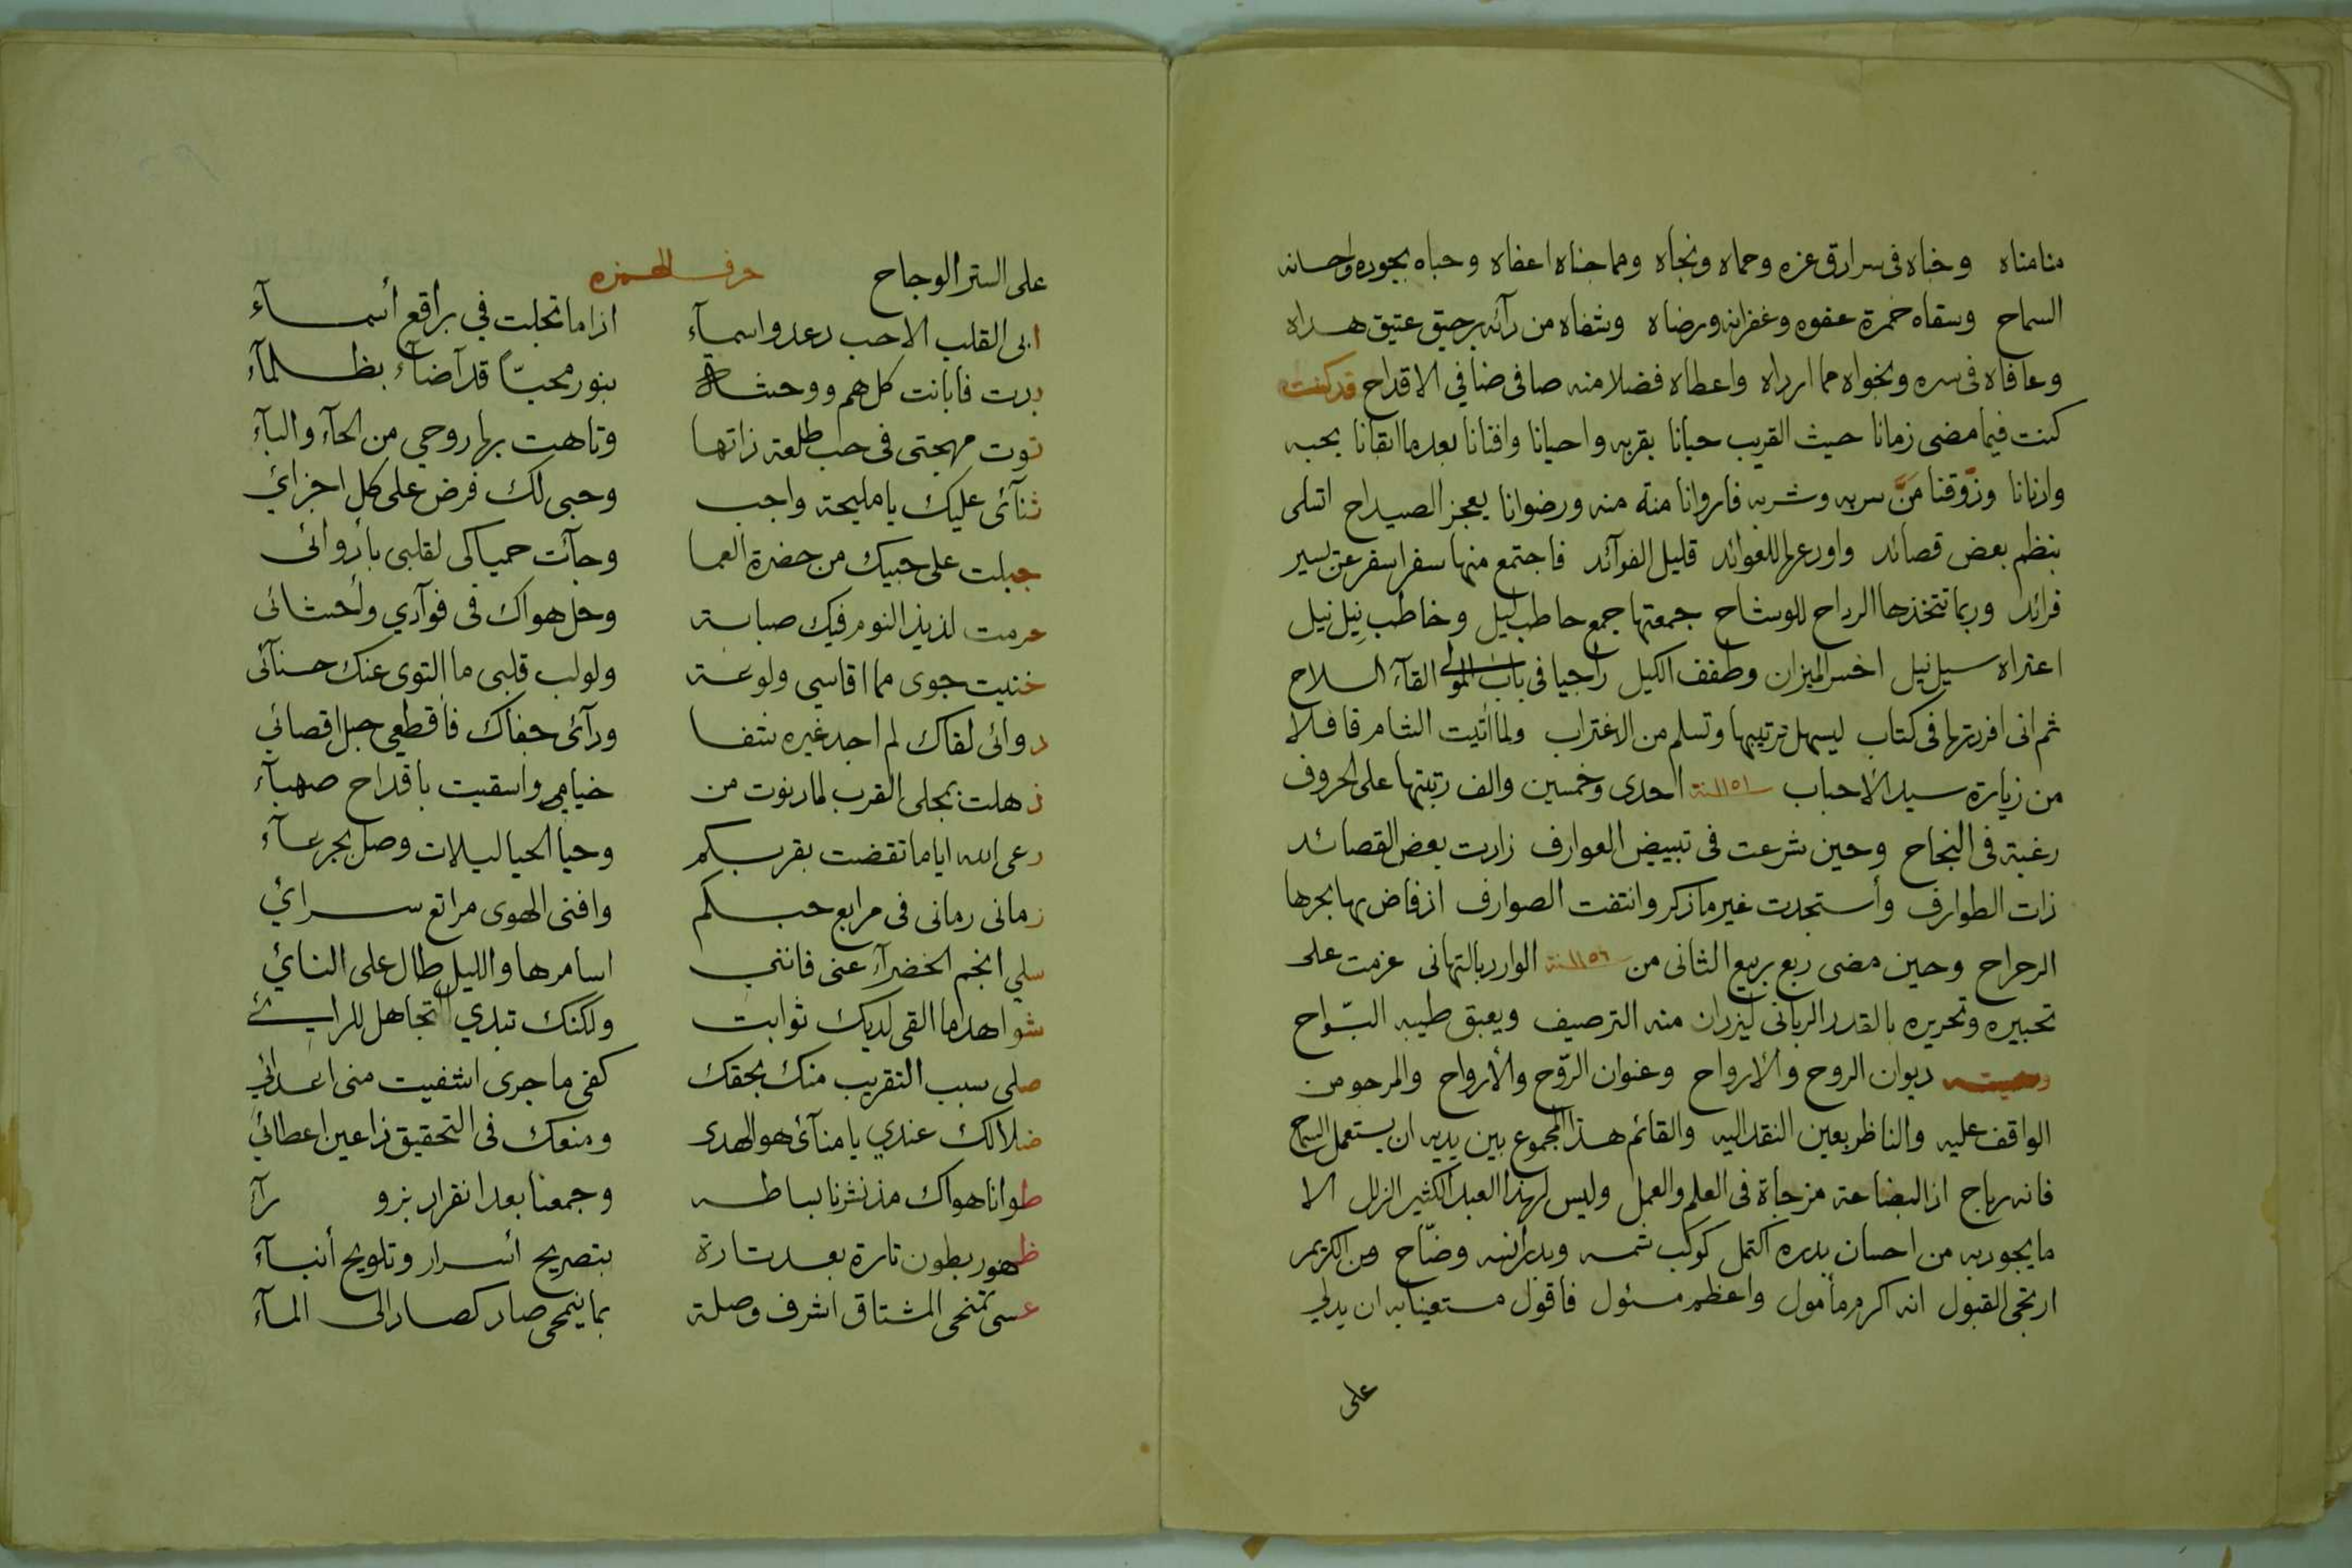 منا مناه وخباه فى سرادق عزه وحماه ونجاه ومما جناه اعفاه وحباه بجوده واحسانه
السماح وسقاه خمرة عفوه وغفرانه ورضاه وشفاه من دآئه برحيق عتيق هداه
وعافاه فى سره ونجواه مما ارداه واعطاه فضلا منه صافى ضافي الاقداح قد كنت
كنت فيما مضى زمانا حيث القريب حبانا بقربه واحيانا وافنانا بعدما ابقانا بحبه
وادنانا وذوّقنا مَنَّ سربه وشربه فاروانا منة منه ورضوانا يعجز الصيداح اتسلى
بنظم بعض قصائد واودعها للعوائد قليل الفوآئد فاجتمع منها سفر اسفر عن يسير
فرائد وربما تتخذها الرداح للوشاح جمعتها جمع حاطب ليل وخاطب نيل نيل
اعتراه سيل نيل اخسر الميزان وطفف الكيل راجيا فى باب المولى القآء السلاح
ثم انى افردتها فى كتاب ليسهل ترتيبها وتسلم من الاغتراب ولما أتيت الشام قافلا
من زيارة سيد الأحباب سنة احدى وخمسين والف رتبتها على الحروف
رغبة فى النجاح وحين شرعت فى تبييض العوارف زادت بعض القصائد
ذات الطوارف وأستجدت غير ما ذكر وانتفت الصوارف اذ فاض بها بحرها
الرحراح وحين مضى ربع ربيع الثانى من سنة الوارد بالتهانى عزمت على
تحبيره وتحريره بالقدر الربانى ليزدان منه الترصيف ويعبق طيبه النوّاح
وسميته ديوان الروح والارواح وعنوان الرّوح والأرواح والمرجو من
الواقف عليه والناظر بعين النقد اليه والقائم هذا المجموع بين يديه ان يستعمل السماح
فانه رباح اذ البضاعة مزجاة فى العلم والعمل وليس لهذا العبد الكثير الزلل الا
ما يجود به من احسان بدره اكتمل كوكب شمسه وبدر انسه وضّاح ومن الكريم
ارتجى القبول انه اكرم مأمول واعظم مسئول فأقول مستعينا به ان يدلي
على
على الستر الوجاح حرف الهمزه
ابى القلب الا حب دعد واسمآء اذا ما تجلت في براقع أسمآء
بدت فابانت كل هم ووحشة بنور محيّاً قد آضآء بظلمآء
توت مهجتى فى حب طلعة ذاتها وتاهت بها روحي من الحآء والبآء
ثنآئى عليك يا مليحة واجب وحبى لك فرض على كل اجزائي
جبلت على حبيك من حضرة العما وجآئت حمياكى لقلبى بأروائى
حرمت لذيذ النوم فيك صبابة وحل هواك فى فوآدي وأحشائى
خنيت جوى مما اقاسي ولوعة ولولب قلبى ما التوى عنك حسنآئى
دوائى لقاك لم اجد غيره شفا ودآئى جفاك فأقطعي حبل اقصائي
ذهلت بمجلى القرب لما دنوت من خيامي واسقيت باقداح صهبآء
رعى الله اياما تقضت بقربكم وحيا الحيا ليلات وصل بجرعآء
زمانى رمانى فى مرابع حبكم وافنى الهوى مراتع سرائي
سلي انجم الخضرآء عنى فانني اسامرها والليل طال على النائي
شواهد ما القى لديك ثوابت ولكنك تبدي التجاهل للرائي
صلى سبب التقريب منك بحقك كفى ما جرى اشفيت منى اعدائي
ضلالك عندي يا منآئى هو الهدى ومنعك فى التحقيق ذا عين اعطائي
طوانا هواك مذ نشرنا بساطه وجمعنا بعد انفراد بزو رآء
ظهور بطون تارة بعد تارة بتصريح أسرار وتلويح أنبآء
عسى تمنحى المشتاق اشرف وصلة بما ينمحى صاد كصاد الى المآء